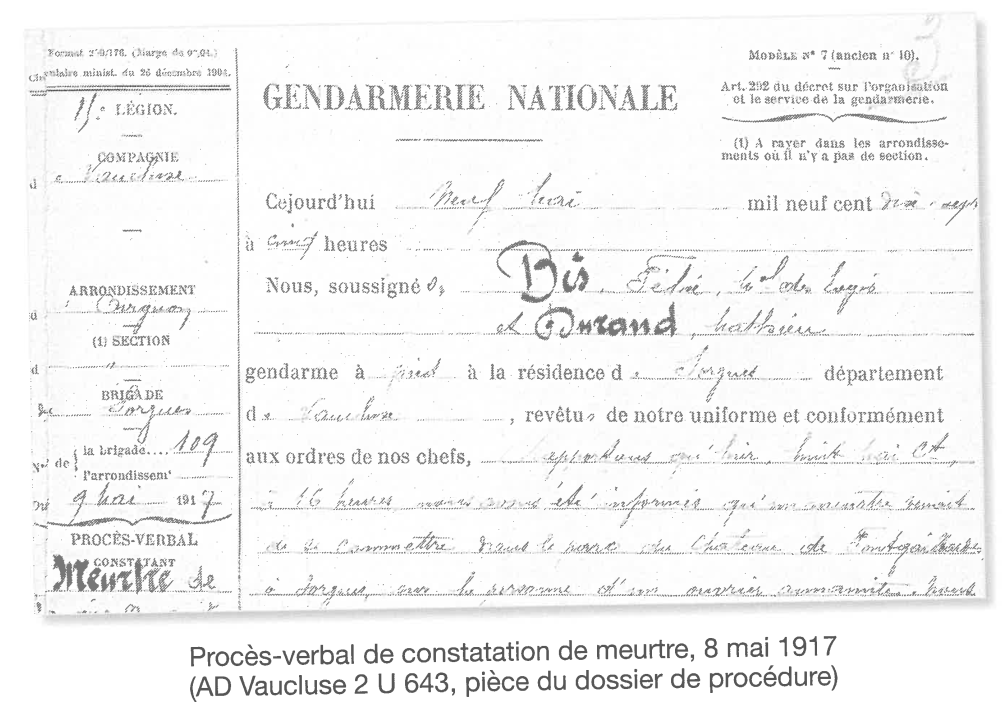 Format 210/176. (Marge de 0m,04.)
Circulaire minist. du 26 décembre 1904.
15e LÉGION.
COMPAGNIE
de Vaucluse
ARRONDISSEMENT
d'Avignon
(1) SECTION
d "
BRIGADE
de Sorgues
Nos de la brigade.... 109
l'arrondissemt
9 Mai 1917
PROCÈS-VERBAL
CONSTATANT
Meurtre de
MODÈLE No 7 (ancien no 10).
Art. 292 du décret sur l'organisation
et le service de la gendarmerie.
(1) A rayer dans les arrondisse-
ments où il n'y a pas de section.
GENDARMERIE NATIONALE
Cejourd'hui Neuf Mai mil neuf cent dix-sept
à cinq heures
Nous, soussignés, Bis, Félix, Mal des Logis
et Durand, Mathieu
gendarme à pied à la résidence de Sorgues département
de Vaucluse, revêtus de notre uniforme et conformément
aux ordres de nos chefs, rapportons qu'hier, huit Mai Ct,
à 16 heures, nous avons été informés qu'un meurtre venait
de se commettre dans le parc du Château de Fontgaillarde
à Sorgues, sur la personne d'un ouvrier annamite. Nous
Procès-verbal de constatation de meurtre, 8 mai 1917
(AD Vaucluse 2 U 643, pièce du dossier de procédure)